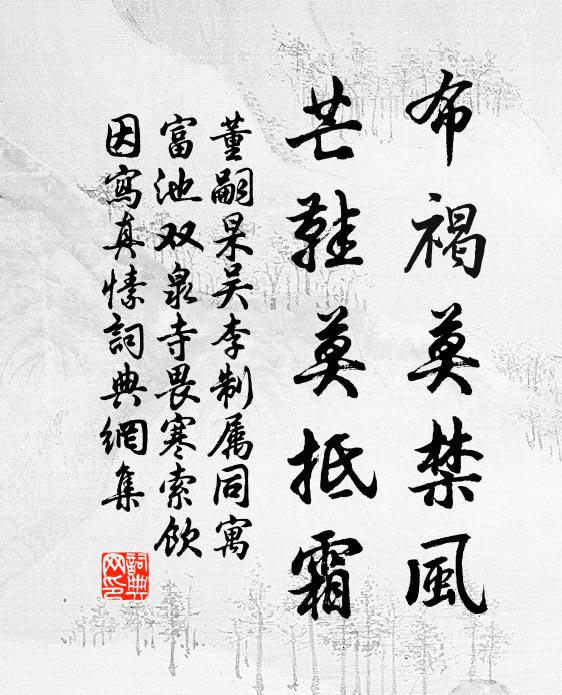 布褐莫禁風
芒鞋莫抵霜
董嗣杲吴李制属同寓
富池双泉寺畏寒索饮
因寫真愫詞典網集
詞典网印